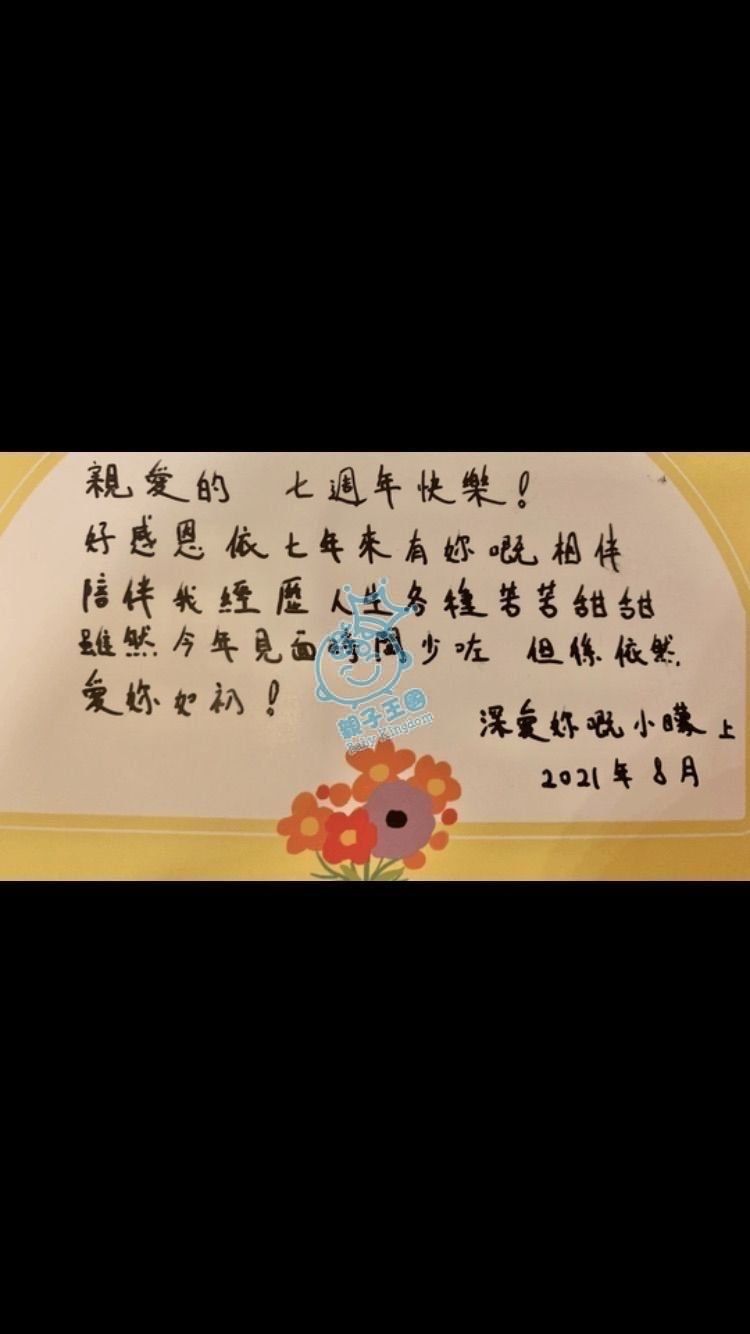 親愛的 七週年快樂!
好感恩依七年來有妳嘅相伴
陪伴我經歷人生各種苦苦甜甜
雖然今年見面時間少咗 但係依然
愛妳如初!
親子王國
Baby Kingdom
深愛妳嘅小 上
2021年8月